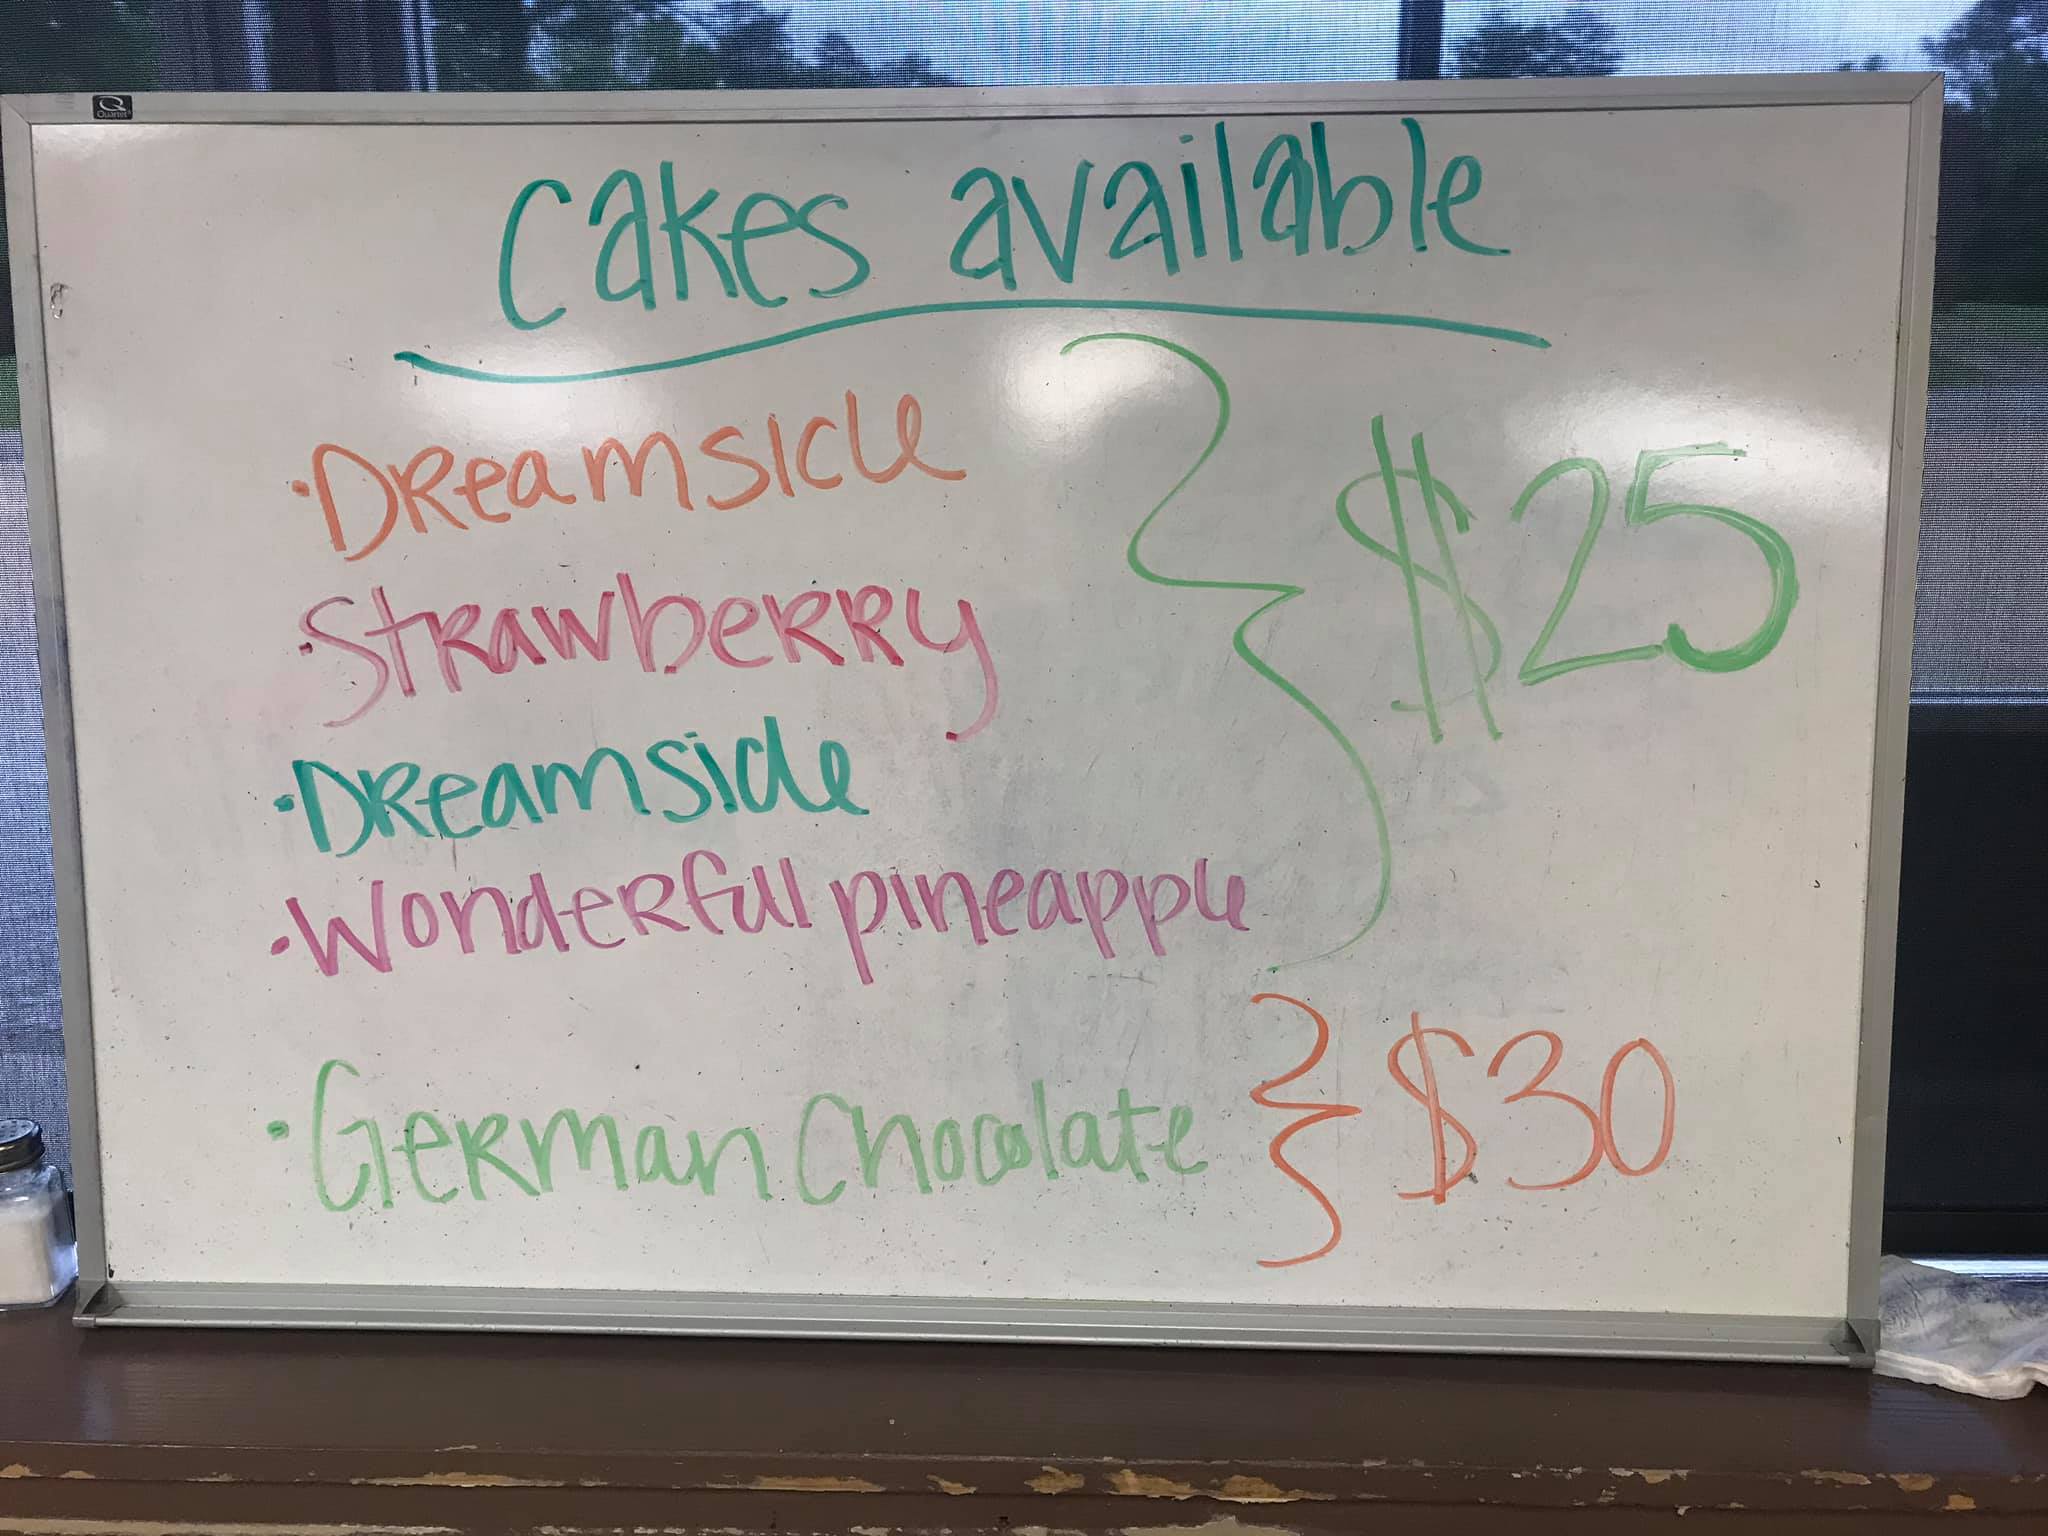 Quartet
Cakes available
• Dreamsicle
• Strawberry
• Dreamsicle
• Wonderful pineapple
$25
• German Chocolate
$30